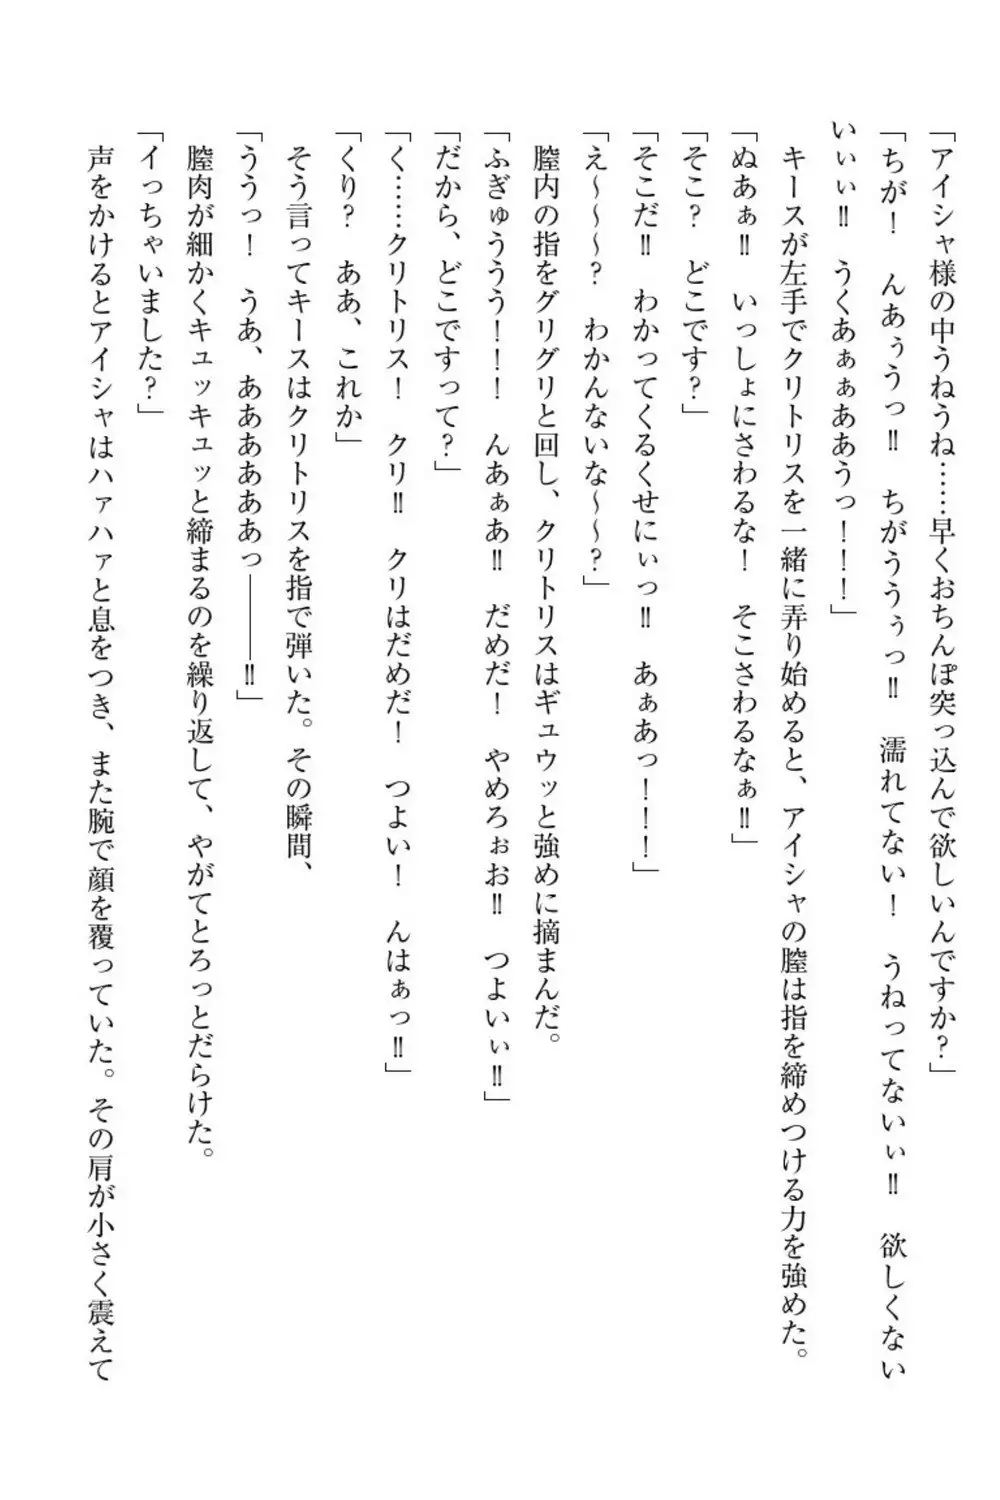 「アイシャ様の中うねうね……早くおちんぽ突っ込んで欲しいんですか？」
「ちが！　んあぅうっ‼　ちがううぅっ‼　濡れてない！　うねってないぃ‼　欲しくない
いぃぃ‼　うくあぁぁああうっ！！！」
　キースが左手でクリトリスを一緒に弄り始めると、アイシャの膣は指を締めつける力を強めた。
「ぬあぁ‼　いっしょにさわるな！　そこさわるなぁ‼」
「そこ？　どこです？」
「そこだ‼　わかってくるくせにぃっ‼　あぁあっ！！！」
「え～～～？　わかんないな～～？」
　膣内の指をグリグリと回し、クリトリスはギュウッと強めに摘まんだ。
「ふぎゅううう！！！　んあぁあ‼　だめだ！　やめろぉお‼　つよいぃ‼」
「だから、どこですって？」
「く……クリトリス！　クリ‼　クリはだめだ！　つよい！　んはぁっ‼」
「くり？　ああ、これか」
　そう言ってキースはクリトリスを指で弾いた。その瞬間、
「ううっ！　うあ、ああああああっ―――‼」
　膣肉が細かくキュッキュッと締まるのを繰り返して、やがてとろっとだらけた。
「イっちゃいました？」
　声をかけるとアイシャはハァハァと息をつき、また腕で顔を覆っていた。その肩が小さく震えて